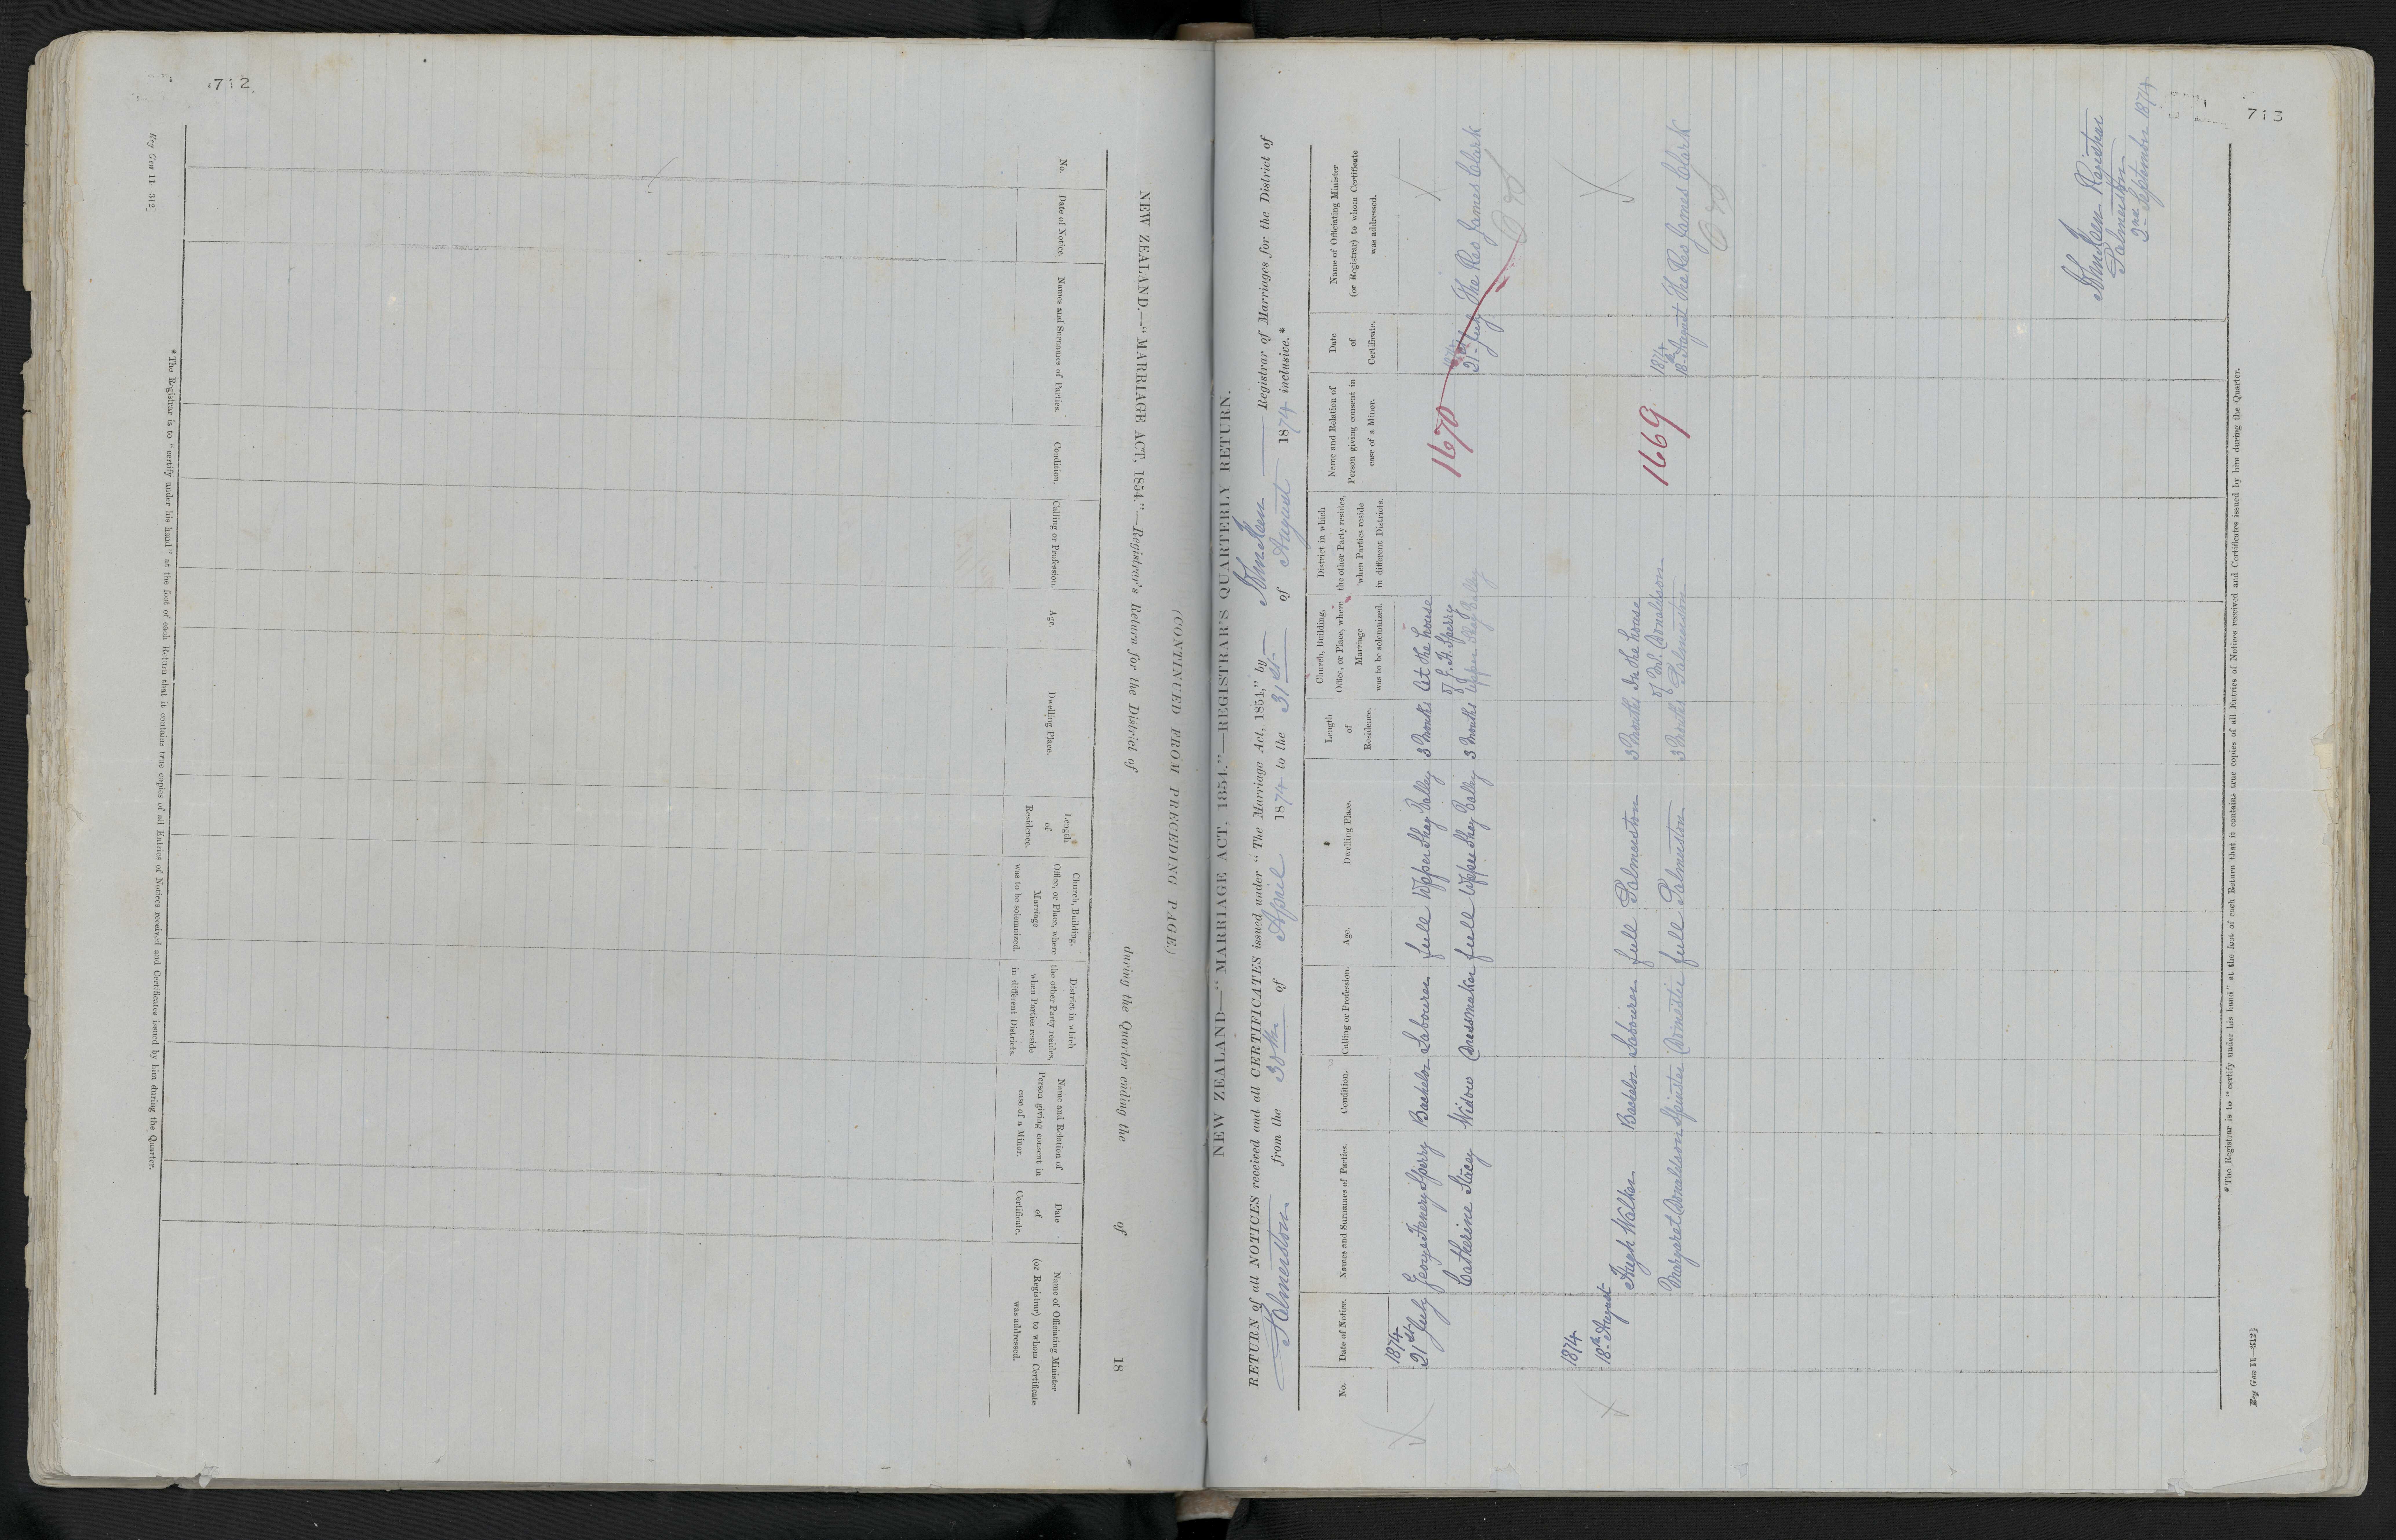 712
NEW ZEALAND.—"MARRIAGE ACT, 1854."—Registrar's Return for the District of during the Quarter ending the of 18
No.
Date of Notice.
Names and Surnames of Parties.
Condition.
Calling or Profession.
Age.
Dwelling Place.
Length
of
Residence.
Church, Building,
Office, or Place, where
Marriage
was to be solemnized.
District in which
the other Party resides,
when Parties reside
in different Districts.
Name and Relation of
Person giving consent in
case of a Minor.
Date
of
Certificate.
Name of Officiating Minister
(or Registrar) to whom Certificate
was addressed.
*The Registrar is to "certify under his hand" at the foot of each Return that it contains true copies of all Entries of Notices received and Certificates issued by him during the Quarter.
Reg Gen 11—312]
(CONTINUED FROM PRECEDING PAGE.)
713
NEW ZEALAND—"MARRIAGE ACT, 1854."—REGISTRAR'S QUARTERLY RETURN.
RETURN of all NOTICES received and all CERTIFICATES issued under "The Marriage Act, 1854," by John Keen Registrar of Marriages for the District of
Palmerston from the 30th of April 1874 to the 31st of August 1874 inclusive.*
No.
Date of Notice.
Names and Surnames of Parties.
Condition.
Calling or Profession.
Age.
Dwelling Place.
Length
of
Residence.
Church, Building,
Office, or Place, where
Marriage
was to be solemnized.
District in which
the other Party resides,
when Parties reside
in different Districts.
Name and Relation of
Person giving consent in
case of a Minor.
Date
of
Certificate.
Name of Officiating Minister
(or Registrar) to whom Certificate
was addressed.
1874
21st July George Henery Sperry Bachelor Labourer full Upper Shag Valley 3 Months At the house
of G. H. Sperry
Catherine Stacey Widow Dressmaker full Upper Shag Valley 3 Months Upper Shag Valley
1670
1874
21st July The Rev James Clark
1874
18th August
Hugh Walker Bachelor Labourer full Palmerston 3 Months In the house
of Mr. Donaldson
Margaret Donaldson Spinster Domestic full Palmerston 3 Months Palmerston
1669
1874
18th August The Rev James Clark
John Keen Registrar
Palmerston
2nd September 1874
*The Registrar is to "certify under his hand" at the foot of each Return that it contains true copies of all Entries of Notices received and Certificates issued by him during the Quarter.
Reg Gen 11—312]